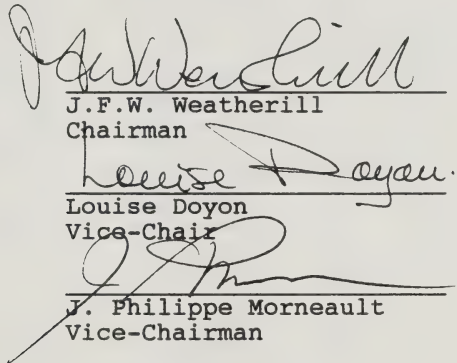 J.F.W. Weatherill
Chairman
Louise Doyon
Louise Doyon
Vice-Chair
J. Philippe Morneault
Vice-Chairman